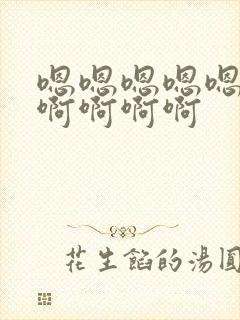 嗯嗯嗯嗯嗯
啊啊啊啊
花生餡的湯圓